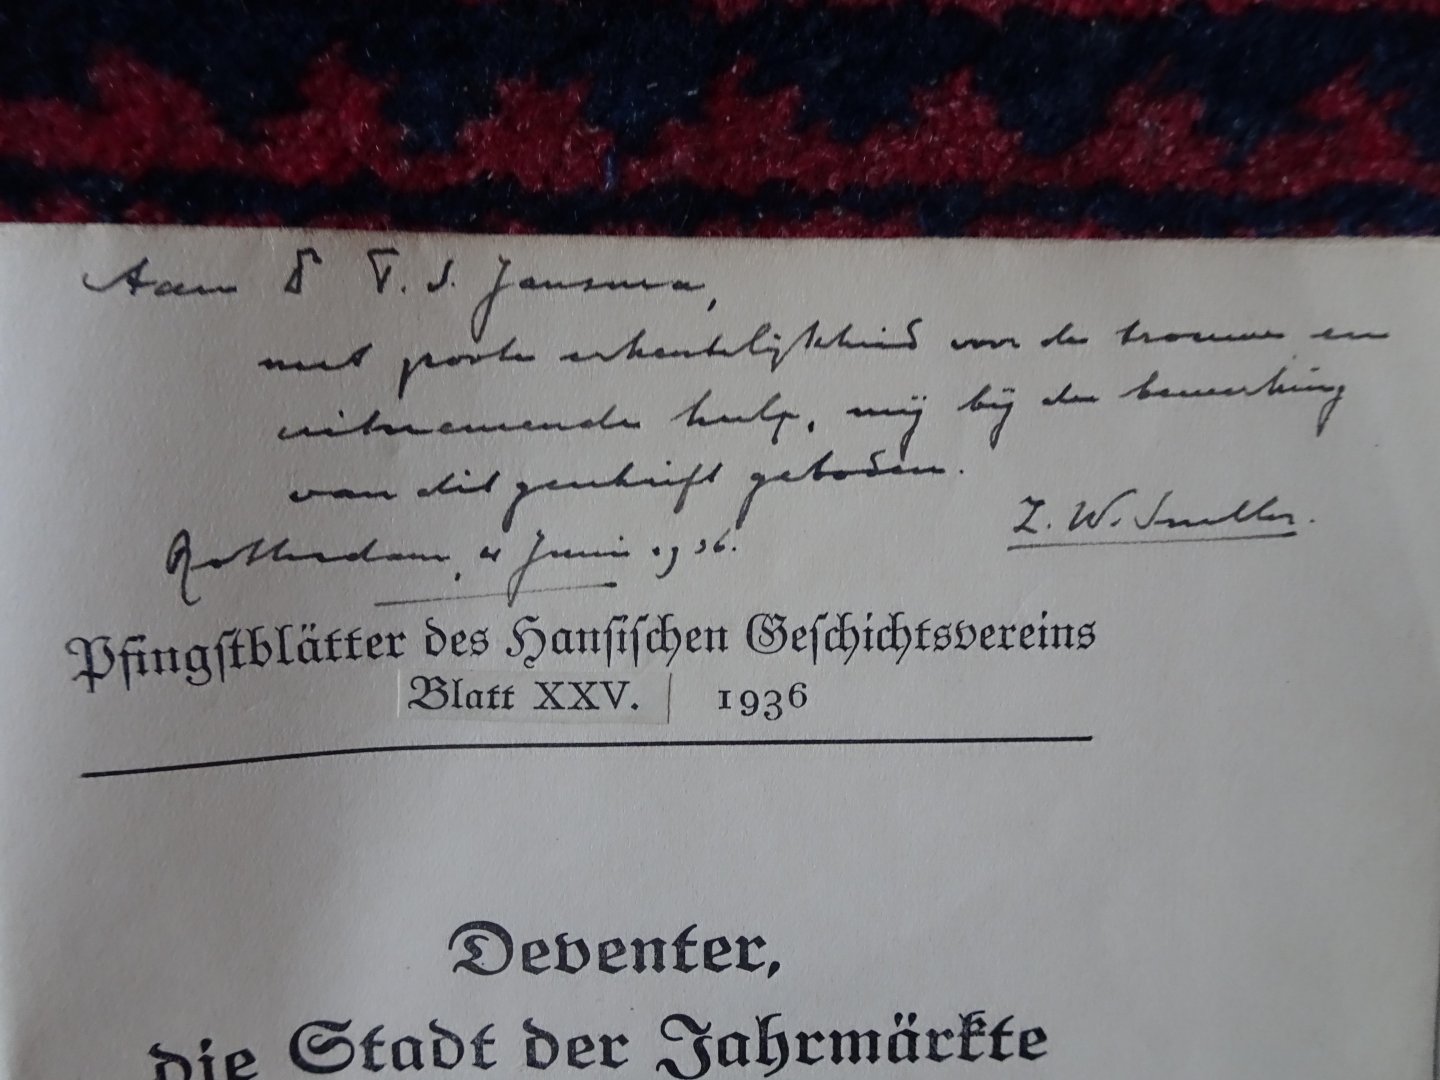 Aan Dr T. S. Jansma,
met groote erkentelijkheid voor de trouwe en
uitnemende hulp, mij bij de bewerking
van dit geschrift geboden.
Z. W. Sneller.
Rotterdam, 4 Juni 1936.
Pfingstblätter des Hansischen Geschichtsvereins
Blatt XXV. 1936
Deventer,
die Stadt der Jahrmärkte